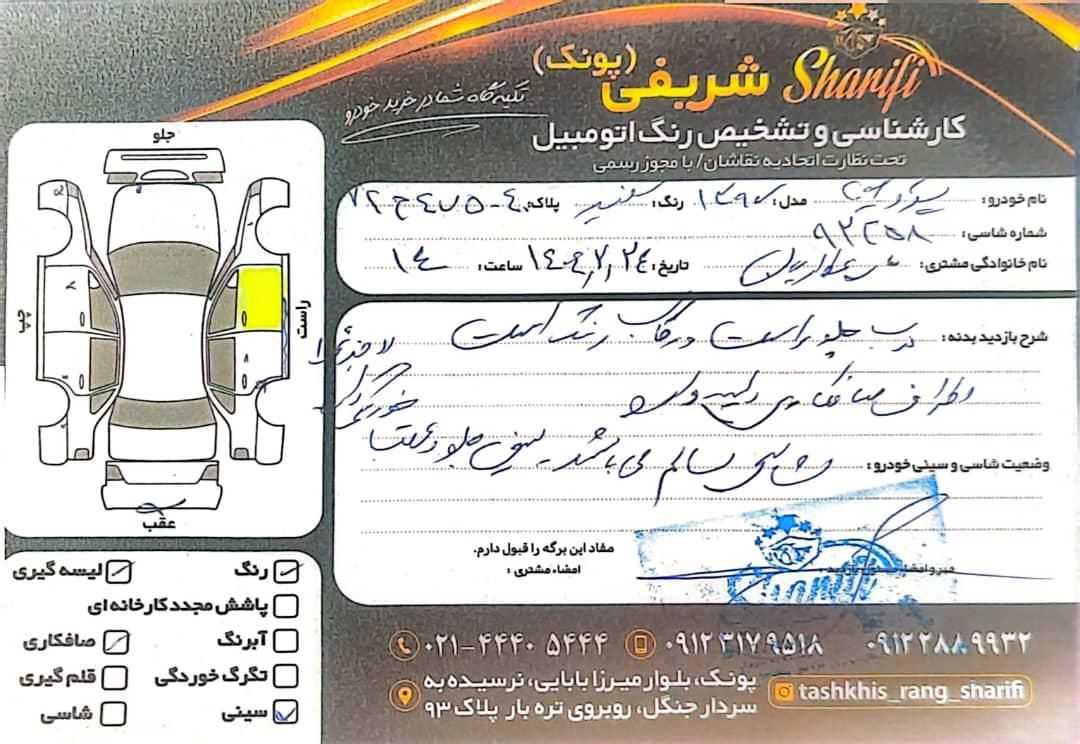 Sharifi شریفی (پونک)
تکیه‌گاه شما در خرید خودرو
کارشناسی و تشخیص رنگ اتومبیل
تحت نظارت اتحادیه نقاشان/ با مجوز رسمی
نام خودرو: مدل: رنگ: سفید پلاک:
شماره شاسی: ۹۲۲۵۸
نام خانوادگی مشتری: تاریخ: ساعت: ۱۴
شرح بازدید بدنه: درب جلو راست و رکاب رنگ است
اطراف صافکاری و لیسه
وضعیت شاسی و سینی خودرو: شاسی سالم می باشد - سینی جلو و عقب
خوردگی
مفاد این برگه را قبول دارم.
امضاء مشتری:
مهر و امضاء مسئول بازدید:
Sharifi
جلو
چپ
راست
عقب
رنگ
لیسه گیری
پاشش مجدد کارخانه ای
آبرنگ
صافکاری
تگرگ خوردگی
قلم گیری
سینی
شاسی
۰۹۱۲ ۲۸۸ ۹۹۳۲
۰۹۱۲ ۳۱۷ ۹۵۱۸
۰۲۱-۴۴۴۰ ۵۴۴۴
tashkhis_rang_sharifi
پونک، بلوار میرزا بابایی، نرسیده به
سردار جنگل، روبروی تره بار پلاک ۹۳